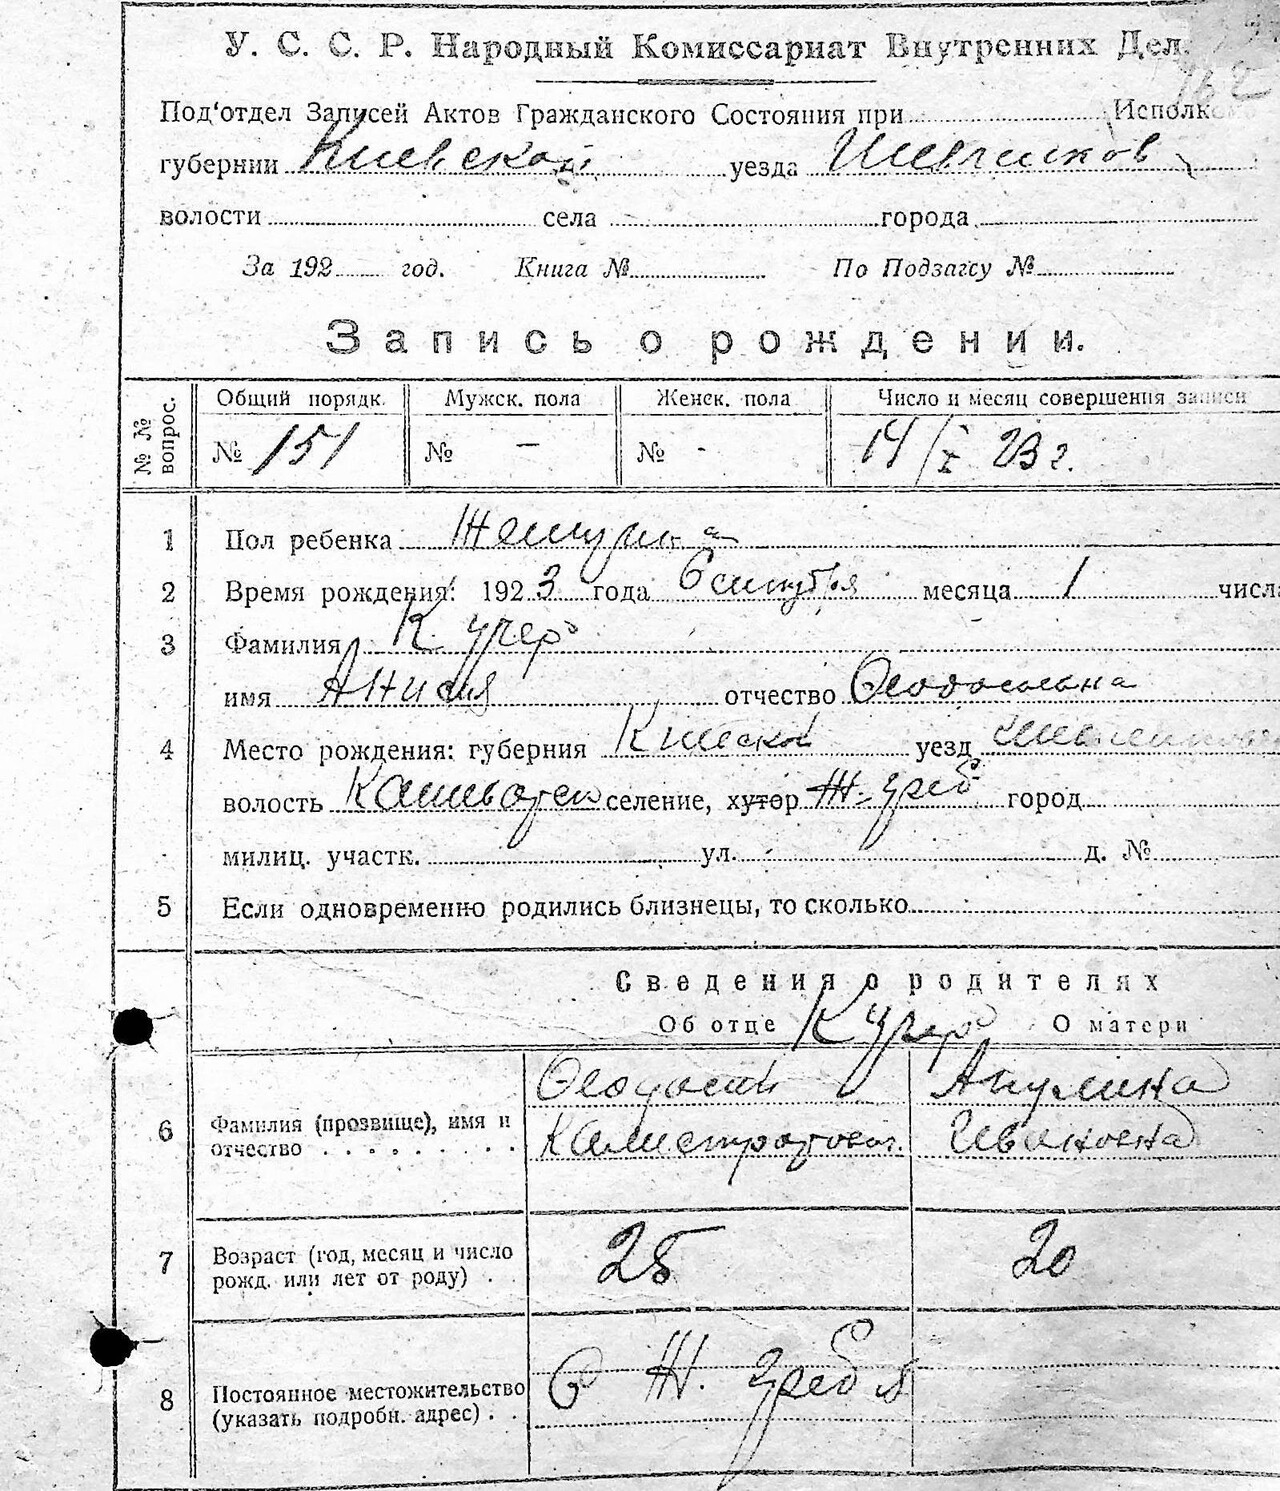 У. С. С. Р. Народный Комиссариат Внутренних Дел.
162
Под'отдел Записей Актов Гражданского Состояния при Исполк
губернии Киевской уезда Шевченков
волости села города
За 192 год. Книга № По Подзагсу №
Запись о рождении.
№ № вопрос. Общий порядк. Мужск. пола Женск. пола Число и месяц совершения записи
№ 151 № - № - 14/X 23 г.
1 Пол ребенка
2 Время рождения: 1923 года Сентября месяца 1 числа
3 Фамилия Кучер
имя Анисия отчество Феодосиевна
4 Место рождения: губерния Киевской уезд Шевченковск
волость селение, хутор Ж-Греб. город
милиц. участк. ул. д. №
5 Если одновременно родились близнецы, то сколько
Сведения о родителях
Об отце Кучер О матери
6 Фамилия (прозвище), имя и отчество Феодосий Акулина
Калистратович. Ивановна
7 Возраст (год, месяц и число рожд. или лет от роду) 25 20
8 Постоянное местожительство (указать подробн. адрес) С Ж. Гребля